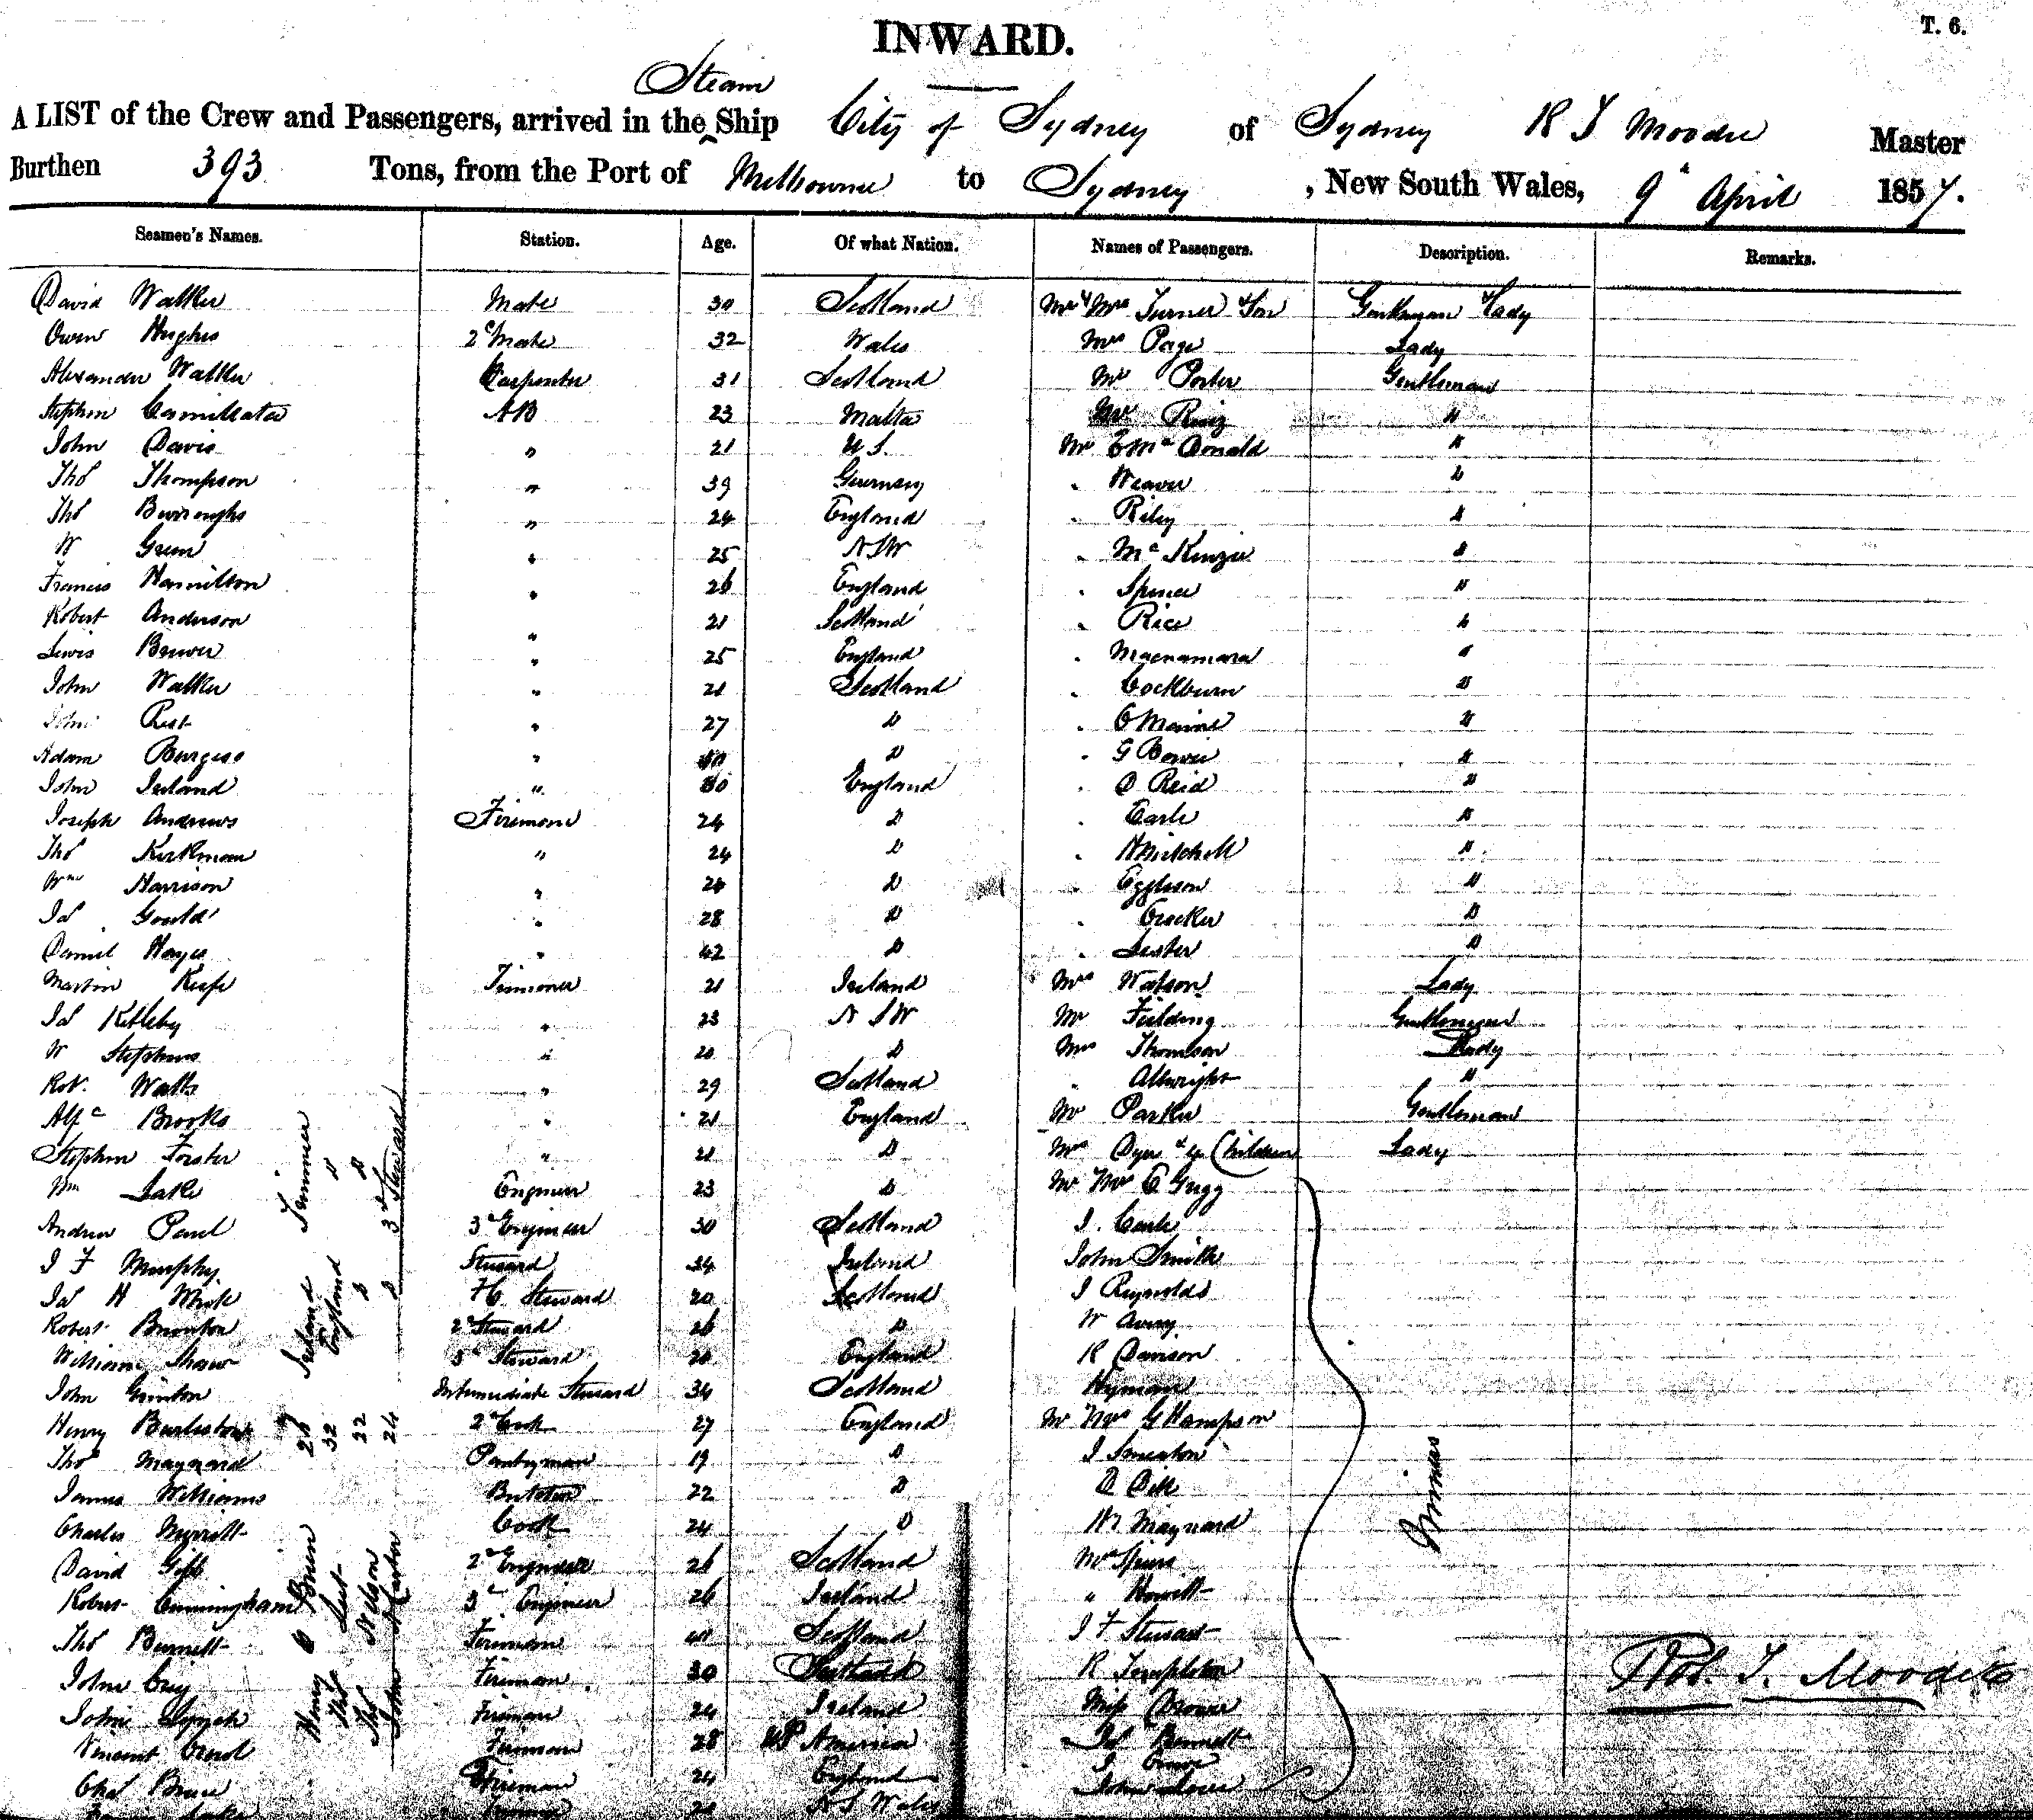 INWARD.
T. 6.
Steam
A LIST of the Crew and Passengers, arrived in the ^ Ship City of Sydney of Sydney R T Moodie Master
Burthen 393 Tons, from the Port of Melbourne to Sydney , New South Wales, 9 April 1857.
Seamen's Names. Station. Age. Of what Nation. Names of Passengers. Description. Remarks.
David Walker Mate 30 Scotland Mr & Mrs Turner & Son Gentleman & Lady
Owen Hughes 2d Mate 32 Wales Mrs Page Lady
Alexander Walker Carpenter 31 Scotland Mr Porter Gentleman
Stephen AB 23 Malta Mr "
John Davis " 21 U S. Mr E Mc Donald "
Thos Thompson " 39 Guernsey " Weaver D
Thos Burroughs " 24 England " Riley "
W Green " 25 N S W " Mc Kenzie "
Francis Hamilton " 26 England " Spence "
Robert Anderson " 21 Scotland " Rice "
Lewis Brewer " 25 England " Macnamara "
John Walker " 21 Scotland " Cockburn "
John Rest " 27 D " "
Adam Burgess " D " G Bowie "
John Ireland " 30 England " D Reid "
Joseph Andrews Firemane 24 D " Earle "
Thos Kirkman " 24 D " H Mitchell "
Wm Harrison " 24 D " Eggleson "
Jas Gould " 28 D " Crocker D
Daniel Hayes " 42 D " Lester D
Martin Keefe Trimmer 21 Ireland Mrs Watson Lady
Jas Kettleby " 23 N S W Mr Fielding Gentleman
W Stephens " 20 D Mrs Thomson Lady
Robt. Watts " 29 Scotland " Allwright "
Alfd Brooks " 21 England Mr Parker Gentleman
Stephen Forster " 21 D Mrs Dyer & 4 Children Lady
Wm Lake Engineer 23 D Mr Mrs E Grigg
Andrew Paul 3d Engineer 30 Scotland J. Earle
J F Murphy Steward 34 Ireland John Smith
Jas H Steward 20 Scotland J Reynolds
Robert Brunton 2d Steward 26 D W Avery
William Shaw 3d Steward 20 England R Davison
John Grinton Intermediate Steward 34 Scotland Hyman
Henry 2d Cook 27 England Mr Mrs G Hampson
Thos Maynard Pantryman 19 D J Smeaton
James Williams Butcher 22 D D Bell
Charles Cook 24 D Wm Maynard
David Gibb 2d Engineer 26 Scotland Mrs Spiers
Robert Cunningham 3d Engineer 26 Ireland " Howett
Thos Burnett Fireman Scotland J F Stewart
John Fireman 30 R Templeton
John Lynch Fireman 24 Ireland Miss Brower
Vincent Fireman 28 US America Jas Bennett
Chas Bruce Fireman 24 England J
20 N S Wales John
Henry O Brien 28 Ireland Trimmer
Thos 32 England D
Thos Nelson 22 D D
John 24 D 3d Steward
Rob. T. Moodie